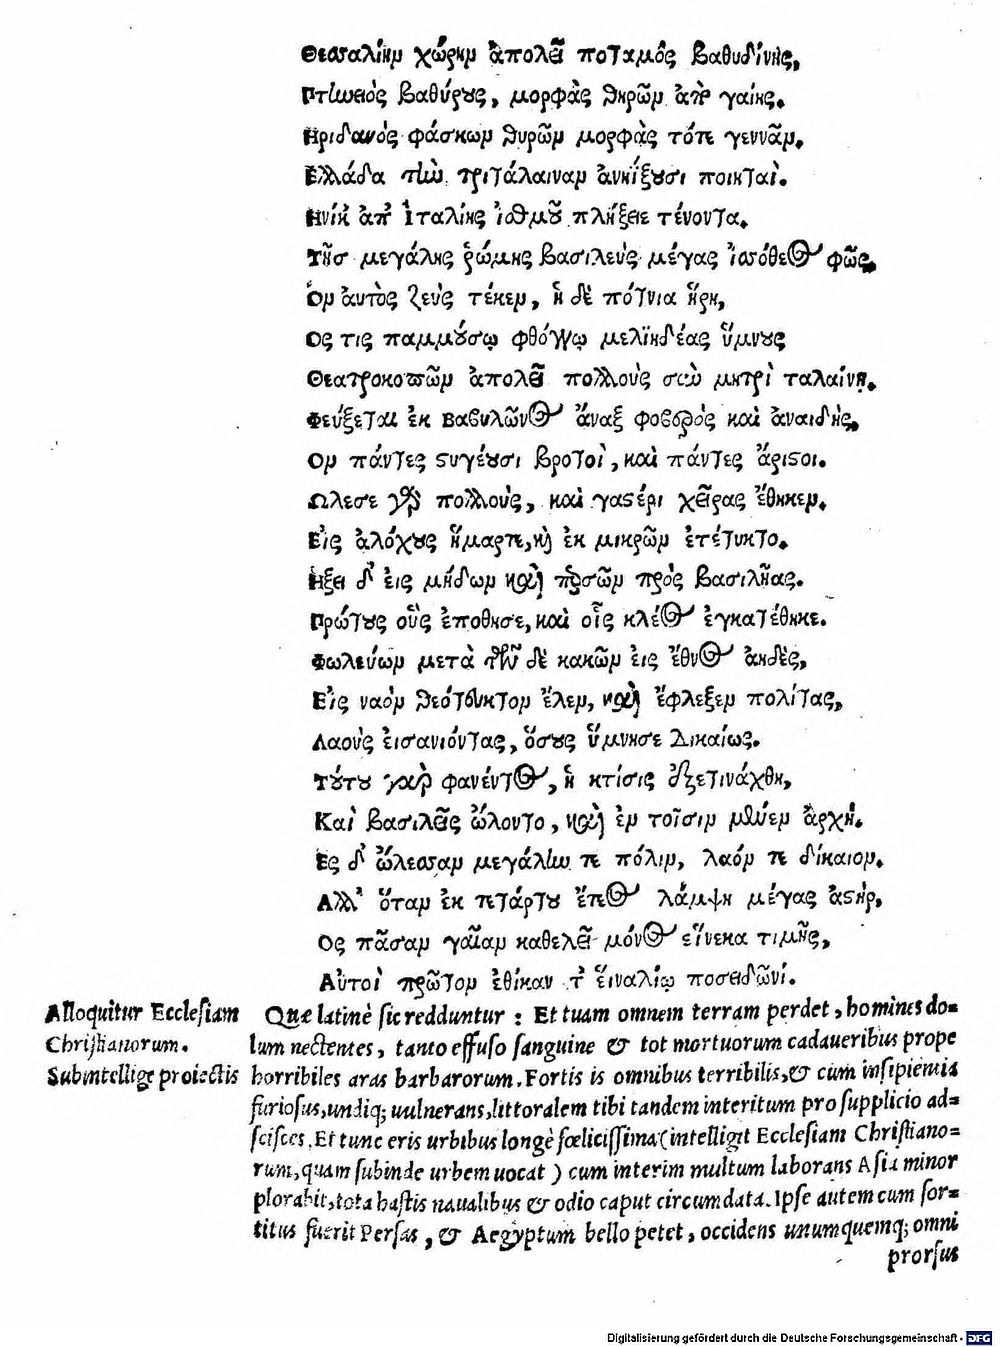 Θεσσαλίην χώρην ἀπολεῖ ποταμὸς βαθυδίνης,
Πηνειὸς βαθύρους, μορφὰς θηρῶν ἀπὸ γαίης.
Ηριδανὸς φάσκων θυρῶν μορφὰς τότε γεννᾶν.
Ελλάδα τὴν τριτάλαιναν ἀνιήξουσι ποιηταὶ.
Ηνίκ ἀπ Ἰταλίης ἰσθμοῦ πλήξειε τένοντα.
Τῆσ μεγάλης ῥώμης βασιλεὺς μέγας ἰσσόθεος φῶς,
Ὃν αὐτὸς ζεὺς τέκεν, ἡ δὲ πότνια ἥρη,
Ος τις παμμούσῳ φθόγγῳ μελϊηδέας ὕμνους
Θεατροκοπῶν ἀπολεῖ πολλοὺς σὺν μητρὶ ταλαίνῃ.
Φεύξεται ἐκ βαβυλῶνος ἄναξ φοβερὸς καὶ ἀναιδὴς,
Ον πάντες στυγέουσι βροτοὶ, καὶ πάντες ἄριστοι.
Ωλεσε γὰρ πολλοὺς, καὶ γαστέρι χεῖρας ἔθηκεν.
Εἰς ἀλόχους ἥμαρτε, καὶ ἐκ μικρῶν ἐτέτυκτο.
Ηξει δ' εἰς μήδων καὶ περσῶν πρὸς βασιλῆας.
Πρώτους οὓς ἐποθησε, καὶ οἷς κλέος ἐγκατέθηκε.
Φωλεύων μετὰ τῶν δὲ κακῶν εἰς ἔθνος ἀηδὲς,
Εἰς ναὸν θεότευκτον ἕλεν, καὶ ἔφλεξεν πολίτας,
Λαοὺς εἰσανιόντας, ὅσους ὕμνησε Δικαίως.
Τούτου γὰρ φανέντος, ἡ κτίσις ἐξετινάχθη,
Καὶ βασιλεῖς ὤλοντο, καὶ ἐν τοῖσιν μένεν ἀρχή.
Ες δ' ὤλεσσαν μεγάλην τε πόλιν, λαόν τε δίκαιον.
Αλλ' ὅταν ἐκ τετάρτου ἔτεος λάμψη μέγας ἀστὴρ,
Ος πᾶσαν γαῖαν καθελεῖ μόνος εἵνεκα τιμῆς,
Αὐτοὶ πρῶτον ἐθίκαν τ' εἰναλίῳ ποσειδῶνι.
Alloquitur Ecclesiam
Christianorum.
Subintellige proiectis
Quæ latinè sic redduntur : Et tuam omnem terram perdet, homines do=
lum nectentes, tanto effuso sanguine & tot mortuorum cadaueribus prope
horribiles aras barbarorum. Fortis is omnibus terribilis, & cum insipientia
furiosus, undiq; uulnerans, littoralem tibi tandem interitum pro supplicio ad=
scisces. Et tunc eris urbibus longè fœlicissima (intelligit Ecclesiam Christiano=
rum, quam subinde urbem uocat ) cum interim multum laborans Asia minor
plorabit, tota hastis naualibus & odio caput circumdata. Ipse autem cum for=
titus fuerit Persas, & Aegyptum bello petet, occidens unumquemq; omni
prorsus
Digitalisierung gefördert durch die Deutsche Forschungsgemeinschaft - DFG